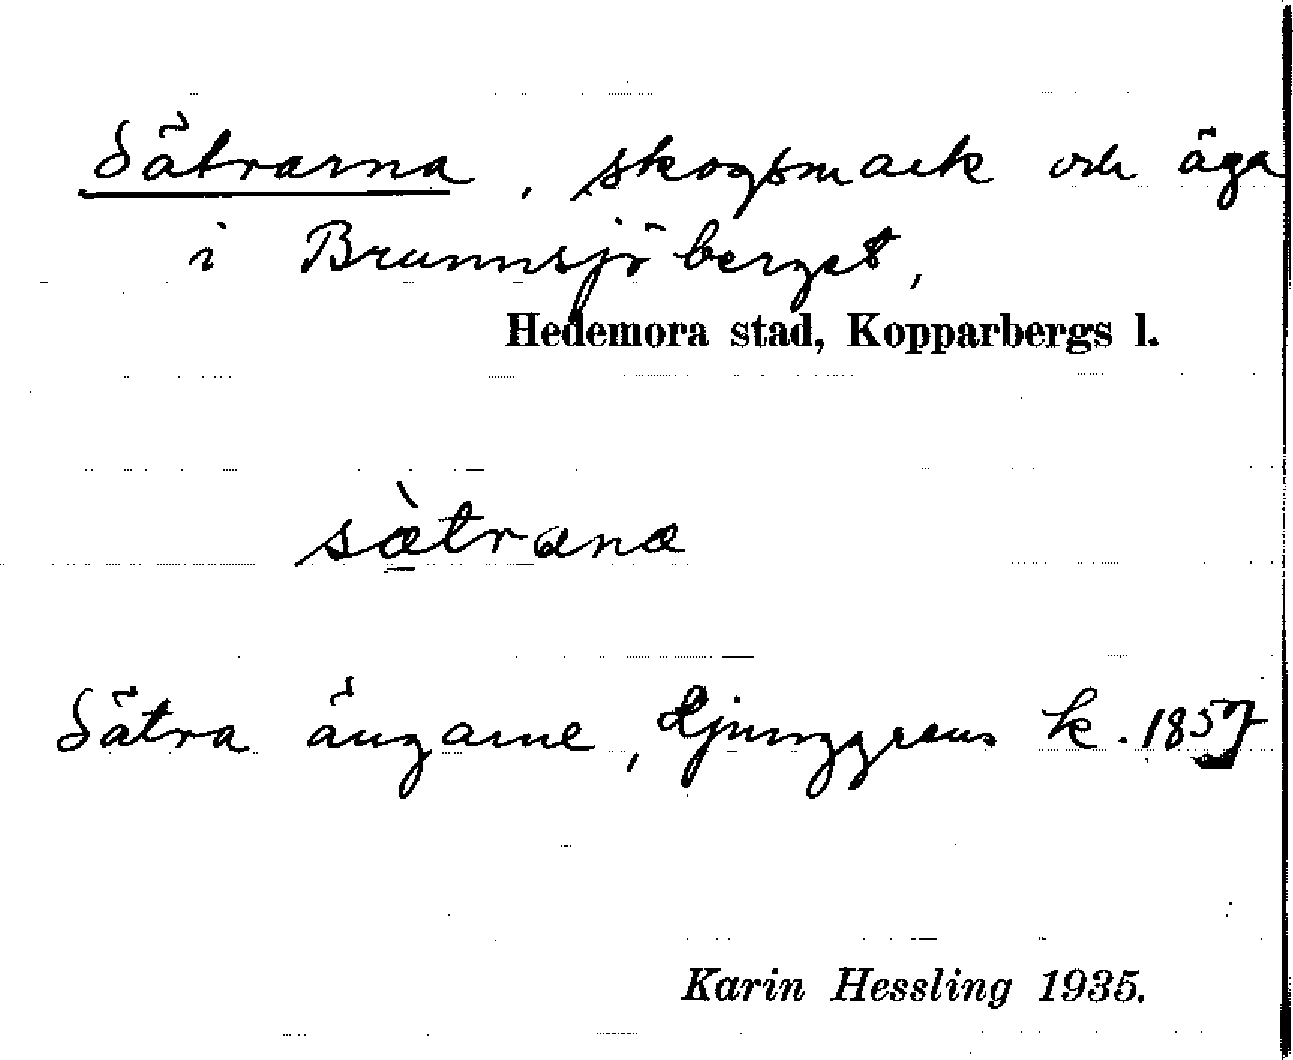 Sätrarna, skogsmark och äga
i Brunnsjöberget,
Hedemora stad, Kopparbergs l.
sæ̀trana
Sätra ängarne, Ljunggrens k. 1857
Karin Hessling 1935.